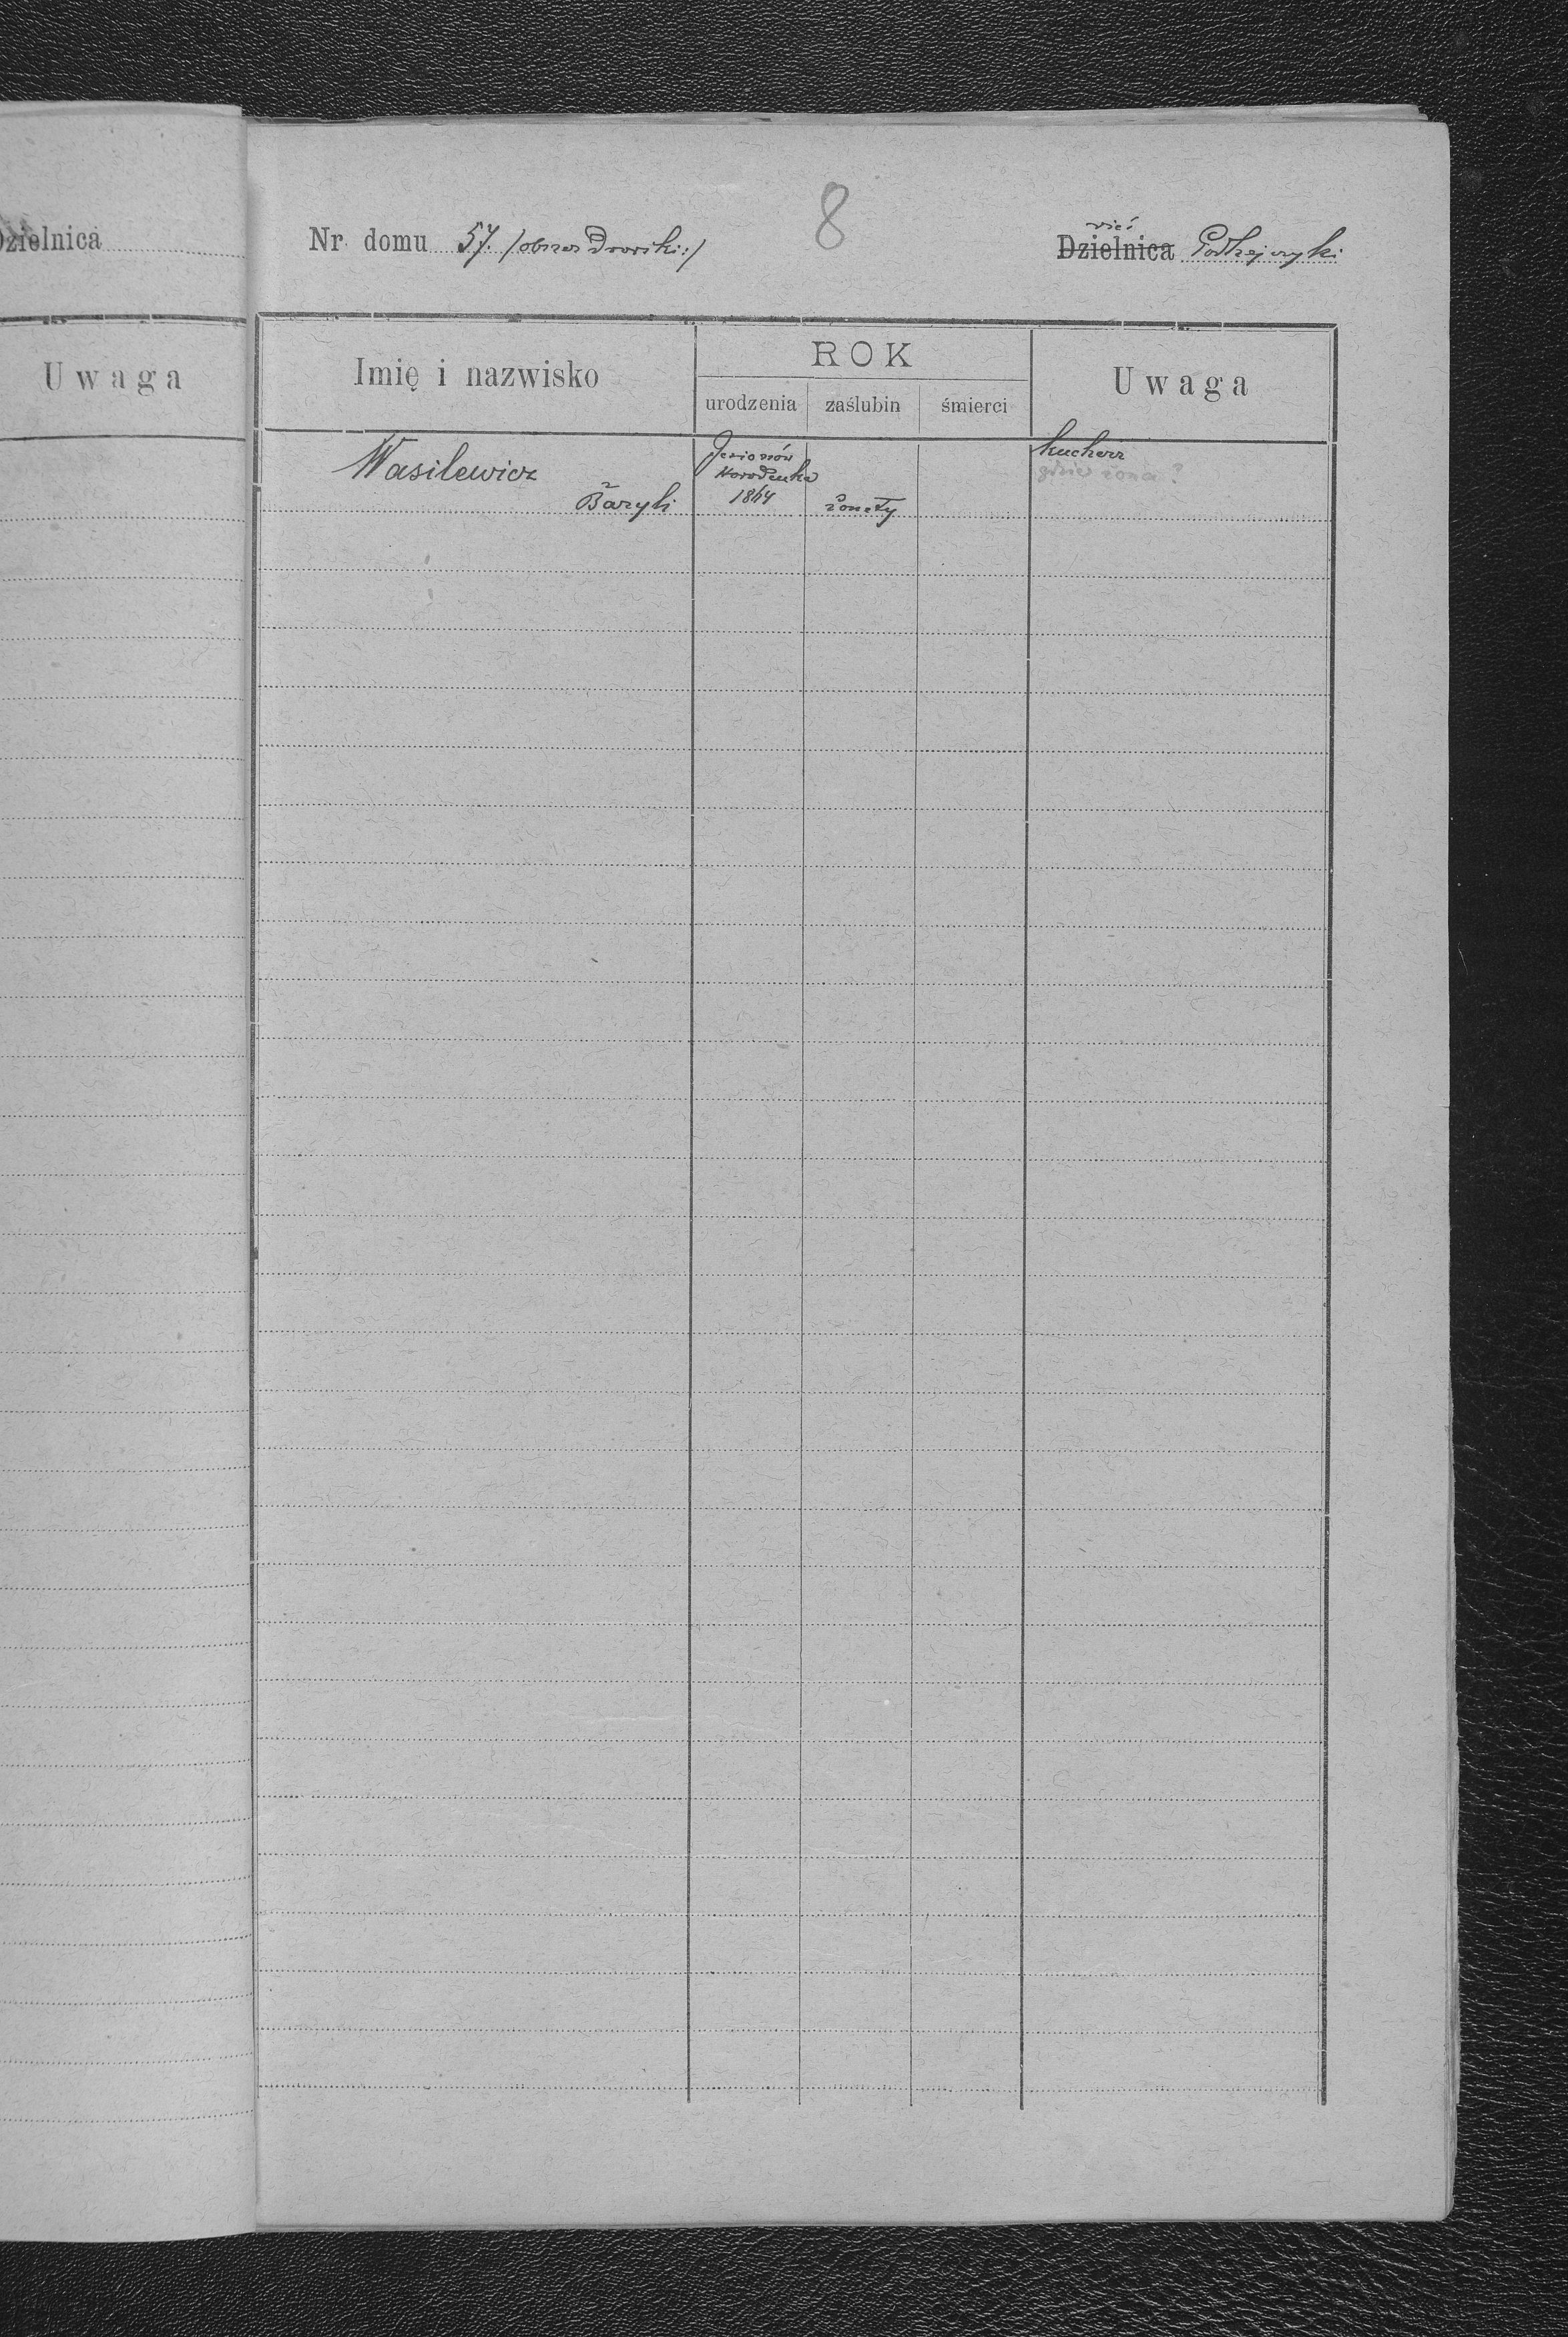 Dzielnica
Uwaga
8
Nr domu 57. /obszar dworski:/
wieś
Dzielnica Podhajczyki
Imię i nazwisko
ROK
urodzenia zaślubin śmierci
Uwaga
Wasilewicz
Bazyli
Horodenka
1864
żonaty
kucharz
gdzie żona?